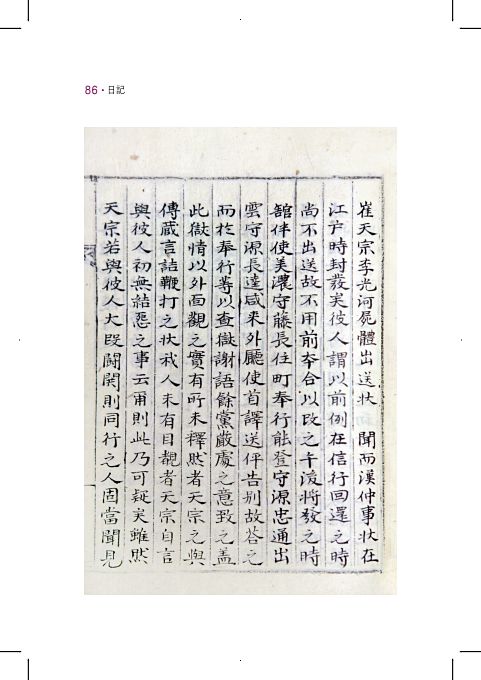 86 · 日記
崔天宗李光河屍體出送狀 聞而漢仲事狀在
江戶時封發矣彼人謂以前例在信行回還之時
尚不出送故不用前本合以改之午後將發之時
舘伴使美濃守藤長住町奉行能登守源忠通出
雲守源長逵咸来外廳使首譯送伻告別故答之
而於奉行等以查獄謝語餘黨嚴處之意致之盖
此獄情以外面觀之實有所未釋然者天宗之與
傳藏言詰鞭打之狀我人未有目覩者天宗自言
與彼人初無結惡之事云爾則此乃可疑矣雖然
天宗若與彼人大段鬪鬨則同行之人固當聞見